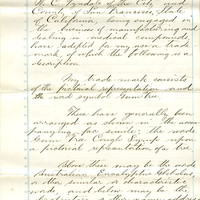 the City and
County of San Francisco, State
of California, being engaged in
the business of manufacturing and
dealing in medical compounds
have adopted for my use a trade
mark, of which the following is a
description.
My trade mark consists
of the pictorial representation and
the word symbol Gum tree.
These have generally been
arranged as shown in the accom-
panying fac simile; the words
Gum Tree Cough Syrup over
a pictorial representation of a tree.
Above these may be the words
Australian, Eucalyptus Globulus,
or other similar or characteristic
words, and below may be the